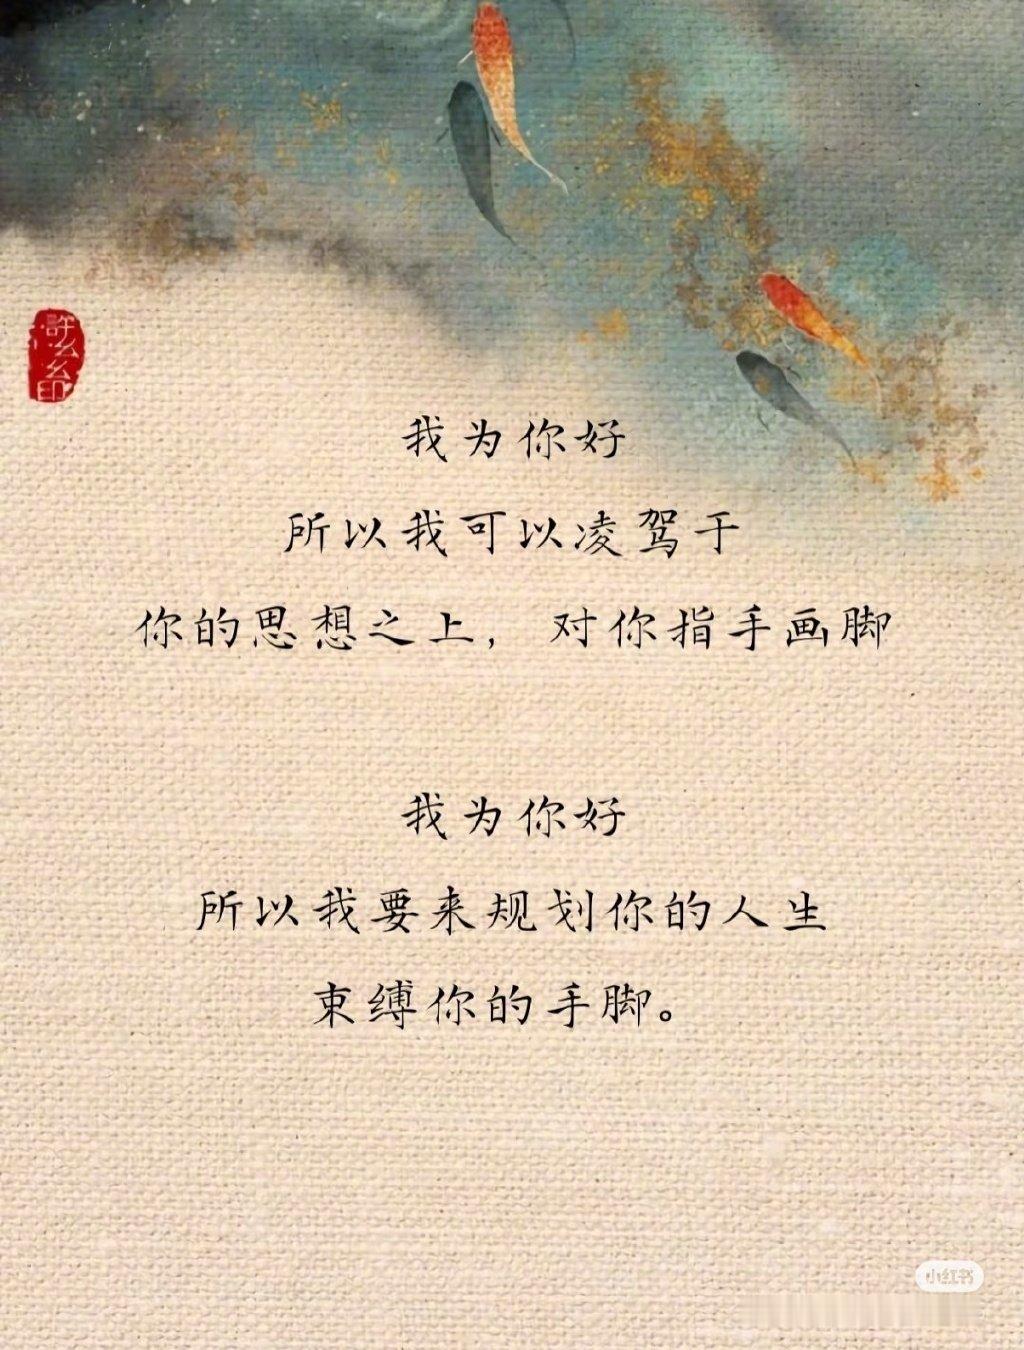 我为你好
所以我可以凌驾于
你的思想之上，对你指手画脚
我为你好
所以我要来规划你的人生
束缚你的手脚。
小红书